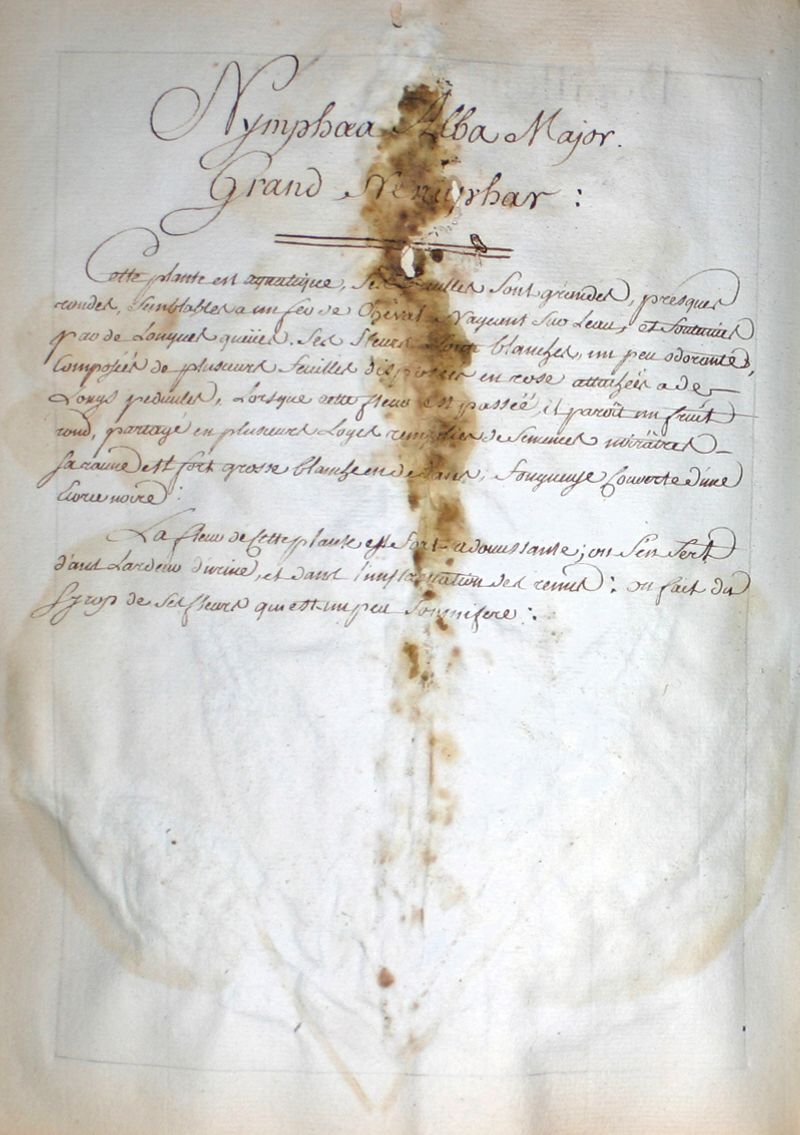 Nymphæa Alba Major.
Grand Nenuphar :
Cette plante est aquatique, Ses feuilles Sont grandes, presques
rondes, Semblables a un fer de Cheval Nageant Sur Leau, et Soutenües
par de Longues queües. Ses fleurs Sont blanches, un peu odorantes,
Composées de plusieurs feuilles disposées en rose attachées a de
Longs pedicules, Lorsque cette fleur est passée, il paroît un fruit
rond, partagé en plusieurs Loges remplies de Semences noirâtres
Sa racine est fort grosse blanche en dedans, fongueuse Couverte d'une
Ecorce noire :
La fleur de Cette plante est fort adoussante ; on S'en Sert
dans Lardeur d'urine, et dans l'inflammation des reins : on fait du
Syrop de Ses fleurs qui est un peu Somnifere :